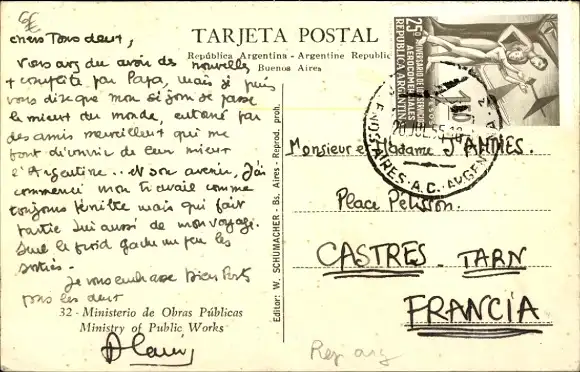 TARJETA POSTAL
República Argentina - Argentine Republic
Buenos Aires
chers Tous deux,
Vous avez du avoir des nouvelles
complète par Papa, mais je puis
vous dire que mon séjour se passe
le mieux du monde, entouré par
des amis merveilleux qui me
font découvrir de leur mieux
l'Argentine .. et son avenir, J'ai
commencé mon travail comme
toujours pénible mais qui fait
partie lui aussi de mon voyage.
Seul le froid gache un peu les
sorties.
Je vous embrasse bien forts
tous les deux
32 - Ministerio de Obras Públicas
Ministry of Public Works
Alain
Editor: W. SCHUMACHER - Bs. Aires - Reprod. proh.
25º ANIVERSARIO
AEROCOMERCIALES
REPUBLICA ARGENTINA
1.50
PESOS
20 JUL. 55
BUENOS AIRES · A.C. · ARGENTINA
Monsieur et Madame
Place Pélisson.
CASTRES - TARN
FRANCIA
Rep arg